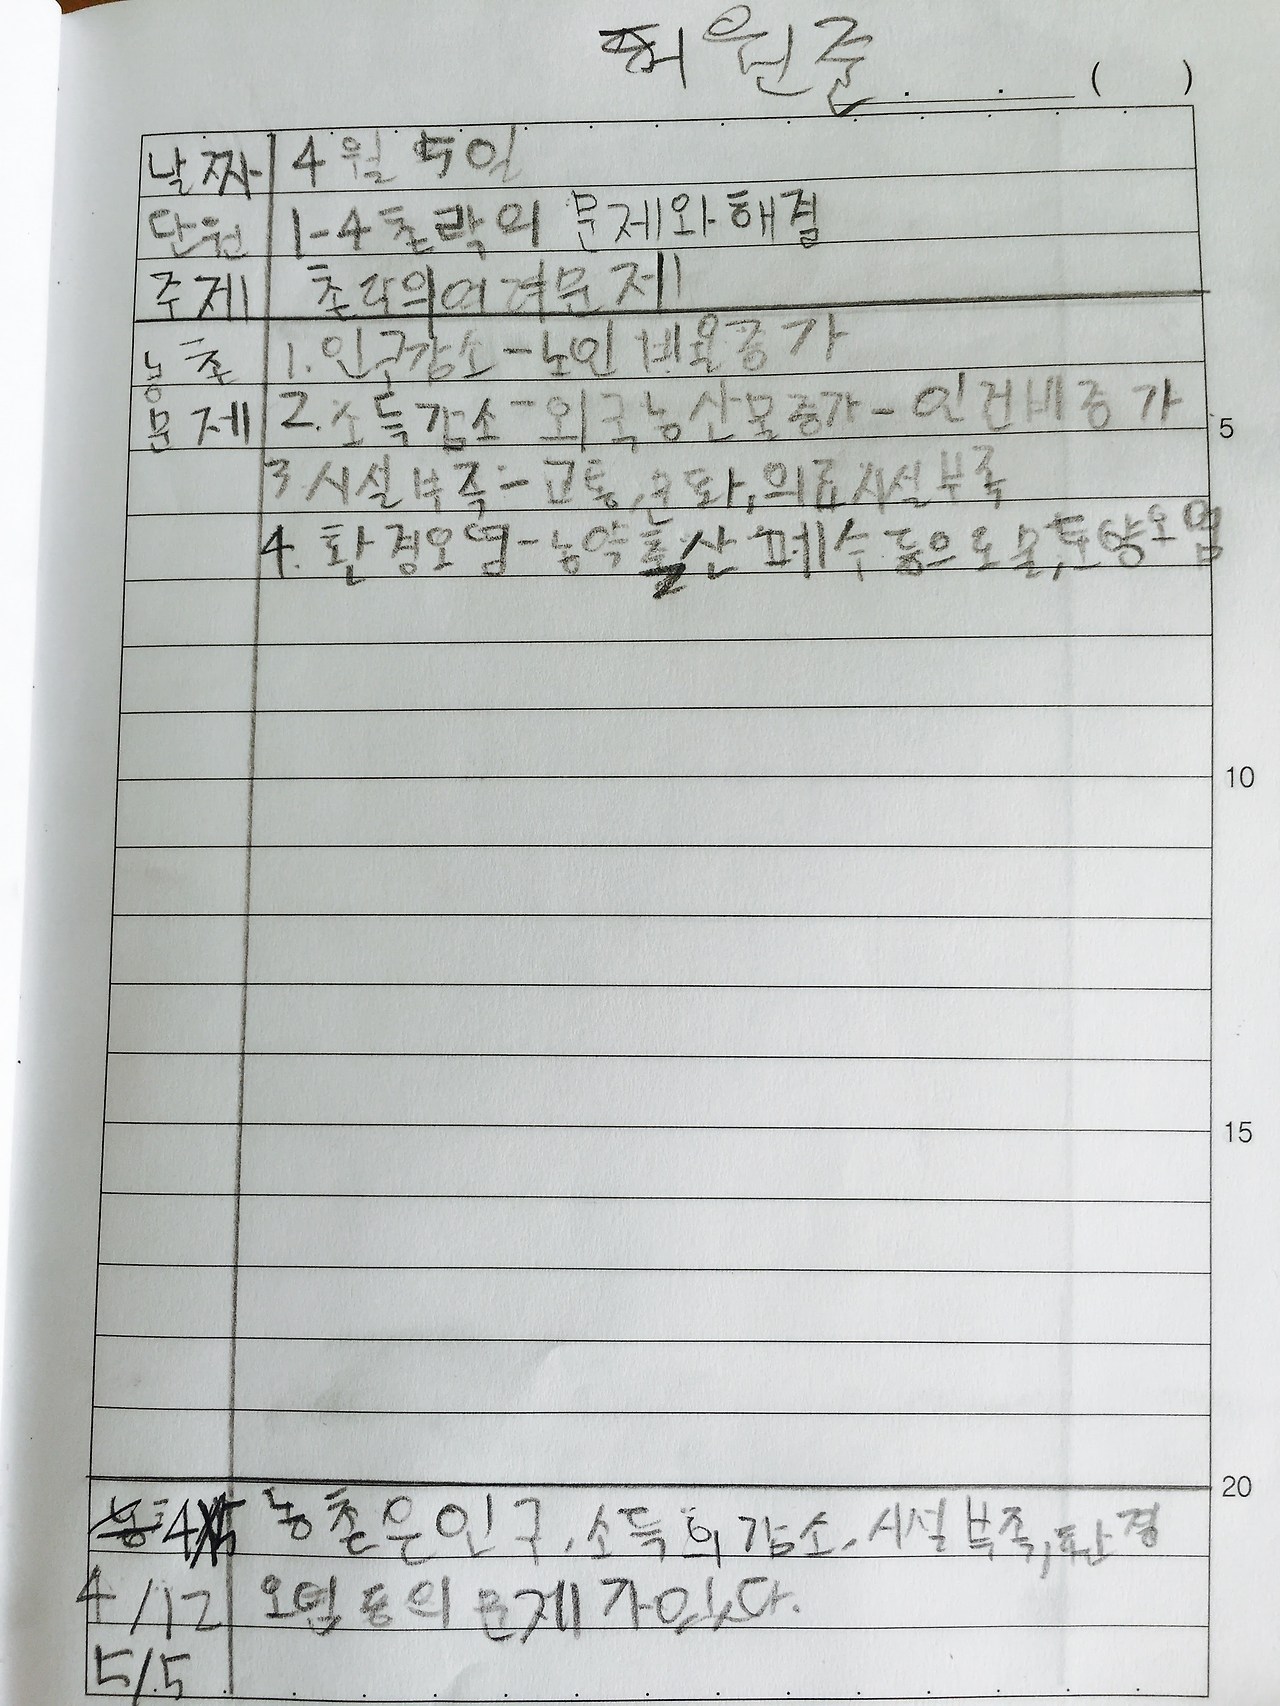 허원준 . . ( )
날짜 4월 5일
단원 1-4 촌락의 문제와 해결
주제 촌락의 여러 문제
농촌 1. 인구감소 - 노인 비율증가
문제 2. 소득감소 - 외국농산물증가 - 인건비증가 5
3. 시설부족 - 교통, 문화, 의료시설부족
4. 환경오염 - 농약 축산 폐수 등으로 물, 토양오염
10
15
20
농촌은 인구, 소득의 감소, 시설부족, 환경
4/12 오염 등의 문제가 있다.
5/5